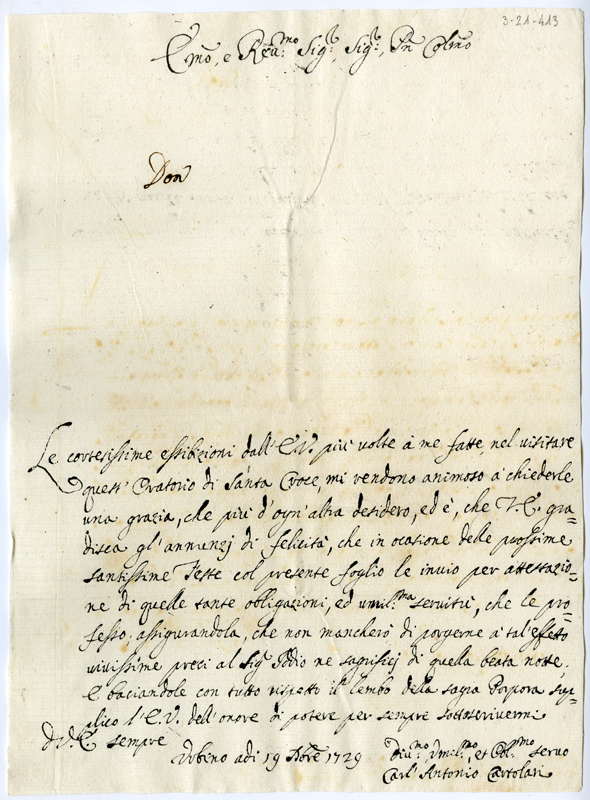 3-21-413
Emo, e Reu:mo Sig:r, Sig:r, Pñ Colmo
Don
Le cortesissime essibizioni dall' E.V. più volte à me fatte, nel visitare
quest' Oratorio di Santa Croce, mi rendono animoso à chiederle
una grazia, che più d'ogn'altra desidero, ed è, che V.E. gra=
disca gl'annunzj di felicità, che in ocasione delle prossime
santissime Feste col presente foglio le invio per attestazio=
ne di quelle tante obligazioni, ed umil:ma servitù, che le pro=
fesso; assigurandola, che non mancherò di porgerne à tal'effetto
vivissime preci al Sig:r Iddio ne sagrificj di quella beata notte,
E baciandole con tutto rispetto il lembo della sagra Porpora sup=
plico l'E.V. dell'onore di potere per sempre sottoscrivermi
di V.E. sempre
Urbino adi 19 Xbre 1729
Diu:mo Umil:mo, et Obl:mo servo
Carl' Antonio Cartolari